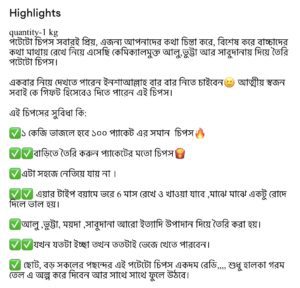 Highlights
quantity-1 kg
পটেটো চিপস সবারই প্রিয়, এজন্য আপনাদের কথা চিন্তা করে, বিশেষ করে বাচ্চাদের
কথা মাথায় রেখে নিয়ে এসেছি কেমিক্যালমুক্ত আলু,ভুট্টা আর সাবুদানায় দিয়ে তৈরি
পটেটো চিপস।
একবার নিয়ে দেখতে পারেন ইনশাআল্লাহ বার বার নিতে চাইবেন😋 আত্মীয় স্বজন
সবাই কে গিফট হিসেবেও দিতে পারেন এই চিপস।
এই চিপসের সুবিধা কি:
✅১ কেজি ভাজলে হবে ১০০ প্যাকেট এর সমান চিপস🔥
✅✅বাড়িতে তৈরি করুন প্যাকেটের মতো চিপস🍟
✅এটা সহজে নেতিয়ে যায় না ।
✅✅ এয়ার টাইপ বয়ামে ভরে 6 মাস রেখে ও খাওয়া যাবে ,মাঝে মাঝে একটু রোদে
দিলে ভাল হয়।
✅আলু ,ভুট্টা, ময়দা ,সাবুদানা আরো ইত্যাদি উপাদান দিয়ে তৈরি করা হয়।
✅✅যখন যতটা ইচ্ছা তখন ততটাই ভেজে খেতে পারবেন।
✅ ছোট, বড় সকলের পছন্দের এই পটেটো চিপস একদম রেডি,,,, শুধু হালকা গরম
তেল এ অল্প করে দিবেন আর সাথে সাথে ফুলে উঠবে।